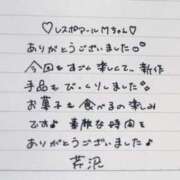 ♡レスポアールMちゃん♡
ありがとうございました
今回もすごく楽しくて、新作
手品もびっくりしました
お菓子も食べるの楽しみ
です♪ 素敵な時間を
ありがとうございました♪
芹沢